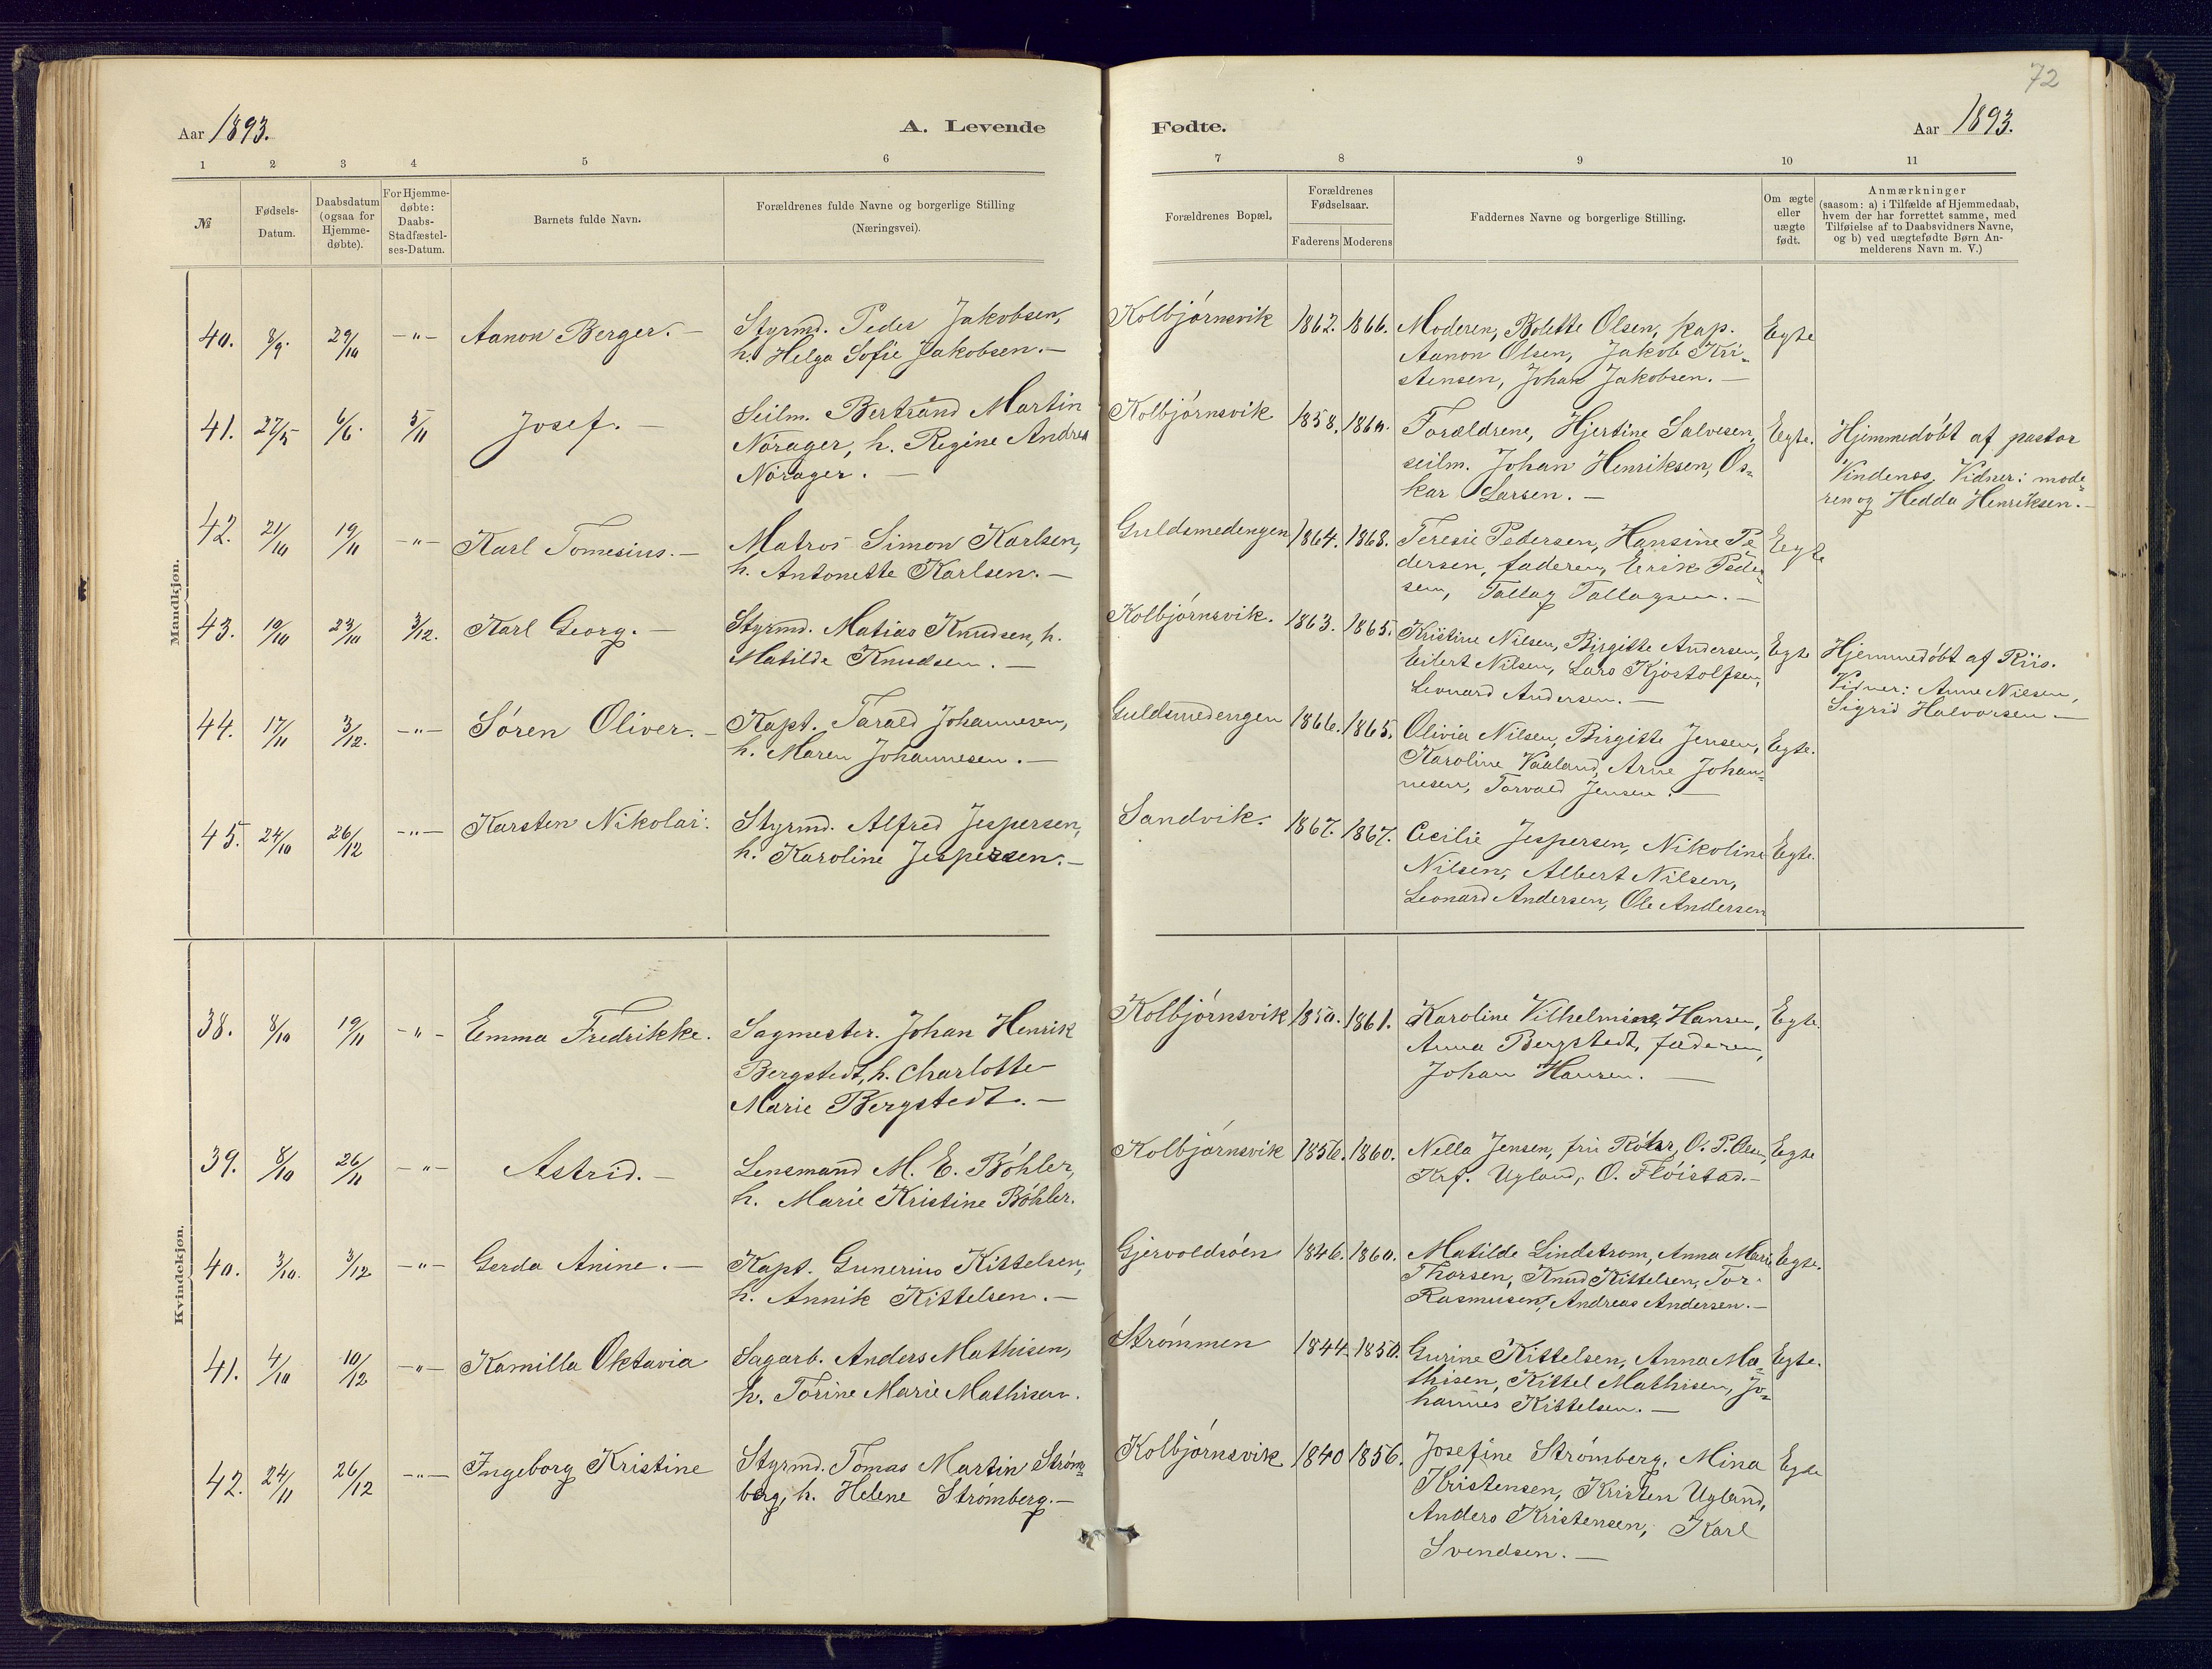 72
Aar 1893.
A. Levende
Fødte.
Aar 1893.
1 2 3 4 5 6 7 8 9 10 11
№
Fødsels-
Datum.
Daabsdatum
(ogsaa for
Hjemme-
døbte).
For Hjemme-
døbte:
Daabs-
Stadfæstel-
ses-Datum.
Barnets fulde Navn.
Forældrenes fulde Navne og borgerlige Stilling
(Næringsvei).
Forældrenes Bopæl.
Forældrenes
Fødselsaar.
Faderens Moderens
Faddernes Navne og borgerlige Stilling.
Om ægte
eller
uægte
født.
Anmærkninger
(saasom: a) i Tilfælde af Hjemmedaab,
hvem der har forrettet samme, med
Tilføielse af to Daabsvidners Navne,
og b) ved uægtefødte Børn An-
melderens Navn m. V.)
Mandkjøn.
40. 8/9. 29/10 -"- Aanon Berger. —
Styrmd. Peder Jakobsen,
h. Helga Sofie Jakobsen. —
Kolbjørnsvik 1862. 1866.
Moderen, Bolette Olsen, kap.
Aanon Olsen, Jakob Kri-
stensen, Johan Jakobsen. —
Egte
41. 27/5 6/6. 5/11 Josef. —
Seilm. Bertrand Martin
Nørager, h. Regine Andrea
Nørager. —
Kolbjørnsvik 1858. 1860.
Forældrene, Hjertine Salvesen,
seilm. Johan Henriksen, Os-
kar Larsen. —
Egte.
Hjemmedøbt af pastor
Vindenes. Vidner: mode-
ren og Hedda Henriksen. —
42. 21/10 19/11 -"- Karl Tomesius. —
Matros Simon Karlsen,
h. Antonette Karlsen. —
Guldsmedengen 1864. 1868.
Teresie Pedersen, Hansine Pe
dersen, faderen, Eerik Peder-
sen, Tallag Tallagsen. —
Egte
43. 19/10 23/10 3/12. Karl Georg. —
Styrmd. Matias Knudsen, h.
Matilde Knudsen. —
Kolbjørnsvik. 1863. 1865.
Kristine Nilsen, Birgitte Andersen,
Eilert Nilsen, Lars Kjøstolfsen,
Leonard Andersen. —
Egte
Hjemmedøbt af Riis.
Vidner: Anne Nilsen,
Sigrid Halvorsen —
44. 17/11 3/12. -"- Søren Oliver. —
Kapt. Tarald Johannesen,
h. Maren Johannesen. —
Guldsmedengen 1866. 1865.
Olivia Nilsen, Birgitte Jensen,
Karoline Vaaland, Arne Johan-
nesen, Torvald Jensen. —
Egte.
45. 24/10 26/12 -"- Karsten Nikolai.
Styrmd. Alfred Jespersen,
h. Karoline Jespersen. —
Sandvik. 1867. 1867.
Cecilie Jespersen, Nikoline
Nilsen, Albert Nilsen,
Leonard Andersen, Ole Andersen
Egte.
Kvindekjøn.
38. 8/10 19/11 -"- Emma Fredrikke.
Sagmester. Johan Henrik
Bergstedt, h. Charlotte
Marie Bergstedt. —
Kolbjørnsvik 1850. 1861.
Karoline Vilhelmine Hansen,
Anna Bergstedt, faderen,
Johan Hansen. —
Egte.
39. 8/10 26/11 -"- Astrid. —
Lensmand M. E. Bøhler,
h. Marie Kristine Bøhler.
Kolbjørnsvik 1856. 1860.
Nella Jensen, fru Röhr, O. P. Olsen,
Krf. Ugland, O. Fløistad. —
Egte
40. 3/10. 3/12 -"- Gerda Anine. —
Kapt. Gunerius Kittelsen,
h. Annik Kittelsen. —
Gjervoldsøen 1846. 1860.
Matilde Lindstrom, Anna Marie
Thorsen, Knud Kittelsen, Tor
Rasmusen, Andreas Andersen. —
Egte.
41. 4/10 10/12 -"- Kamilla Oktavia
Sagarb. Anders Mathisen,
h. Torine Marie Mathisen.
Strømmen 1844. 1850.
Gurine Kittelsen, Anna Ma-
thisen, Kittel Mathisen, Jo-
hannes Kittelsen. —
Egte.
42. 24/11 26/12 -"- Ingeborg Kristine
Styrmd. Tomas Martin Strøm-
berg, h. Helene Strømberg. —
Kolbjørnsvik 1840 1856.
Josefine Strømberg, Mina
Kristensen, Kristen Ugland,
Anders Kristensen, Karl
Svendsen. —
Egte